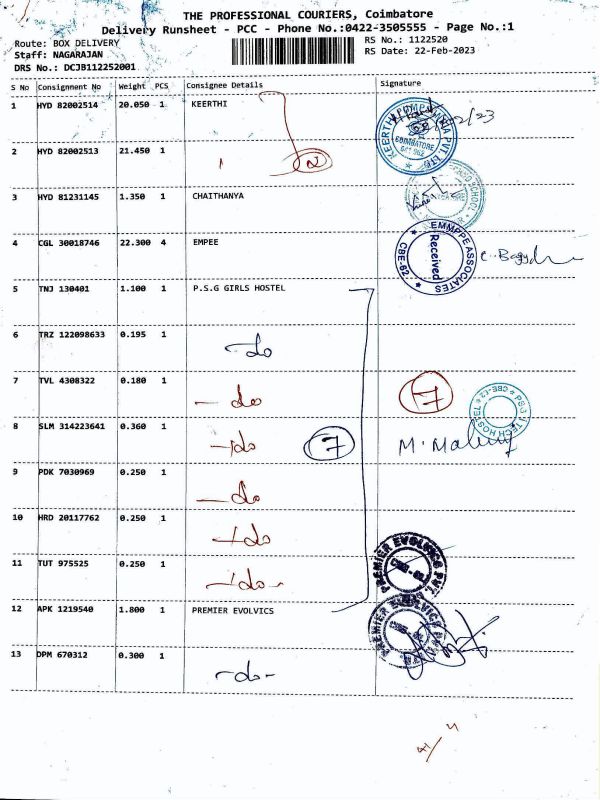 THE PROFESSIONAL COURIERS, Coimbatore
Delivery Runsheet - PCC - Phone No.:0422-3505555 - Page No.:1
Route: BOX DELIVERY
RS No.: 1122520
Staff: NAGARAJAN
RS Date: 22-Feb-2023
DRS No.: DCJB112252001
S No Consignment No Weight PCS Consignee Details Signature
1 HYD 82002514 20.050 1 KEERTHI
2 HYD 82002513 21.450 1
3 HYD 81231145 1.350 1 CHAITHANYA
4 CGL 30018746 22.300 4 EMPEE
EMMPPE ASSOCIATES
Received
CBE-62
5 TNJ 130401 1.100 1 P.S.G GIRLS HOSTEL
6 TRZ 122098633 0.195 1 -do
7 TVL 4308322 0.180 1 -do 7
8 SLM 314223641 0.360 1 -do 7
PSG TECH HOSTEL
9 PDK 7030969 0.250 1 -do
10 HRD 20117762 0.250 1 -do
11 TUT 975525 0.250 1 -do-
PREMIER EVOLVICS PVT.
12 APK 1219540 1.800 1 PREMIER EVOLVICS
PREMIER EVOLVICS
13 DPM 670312 0.300 1 -do-